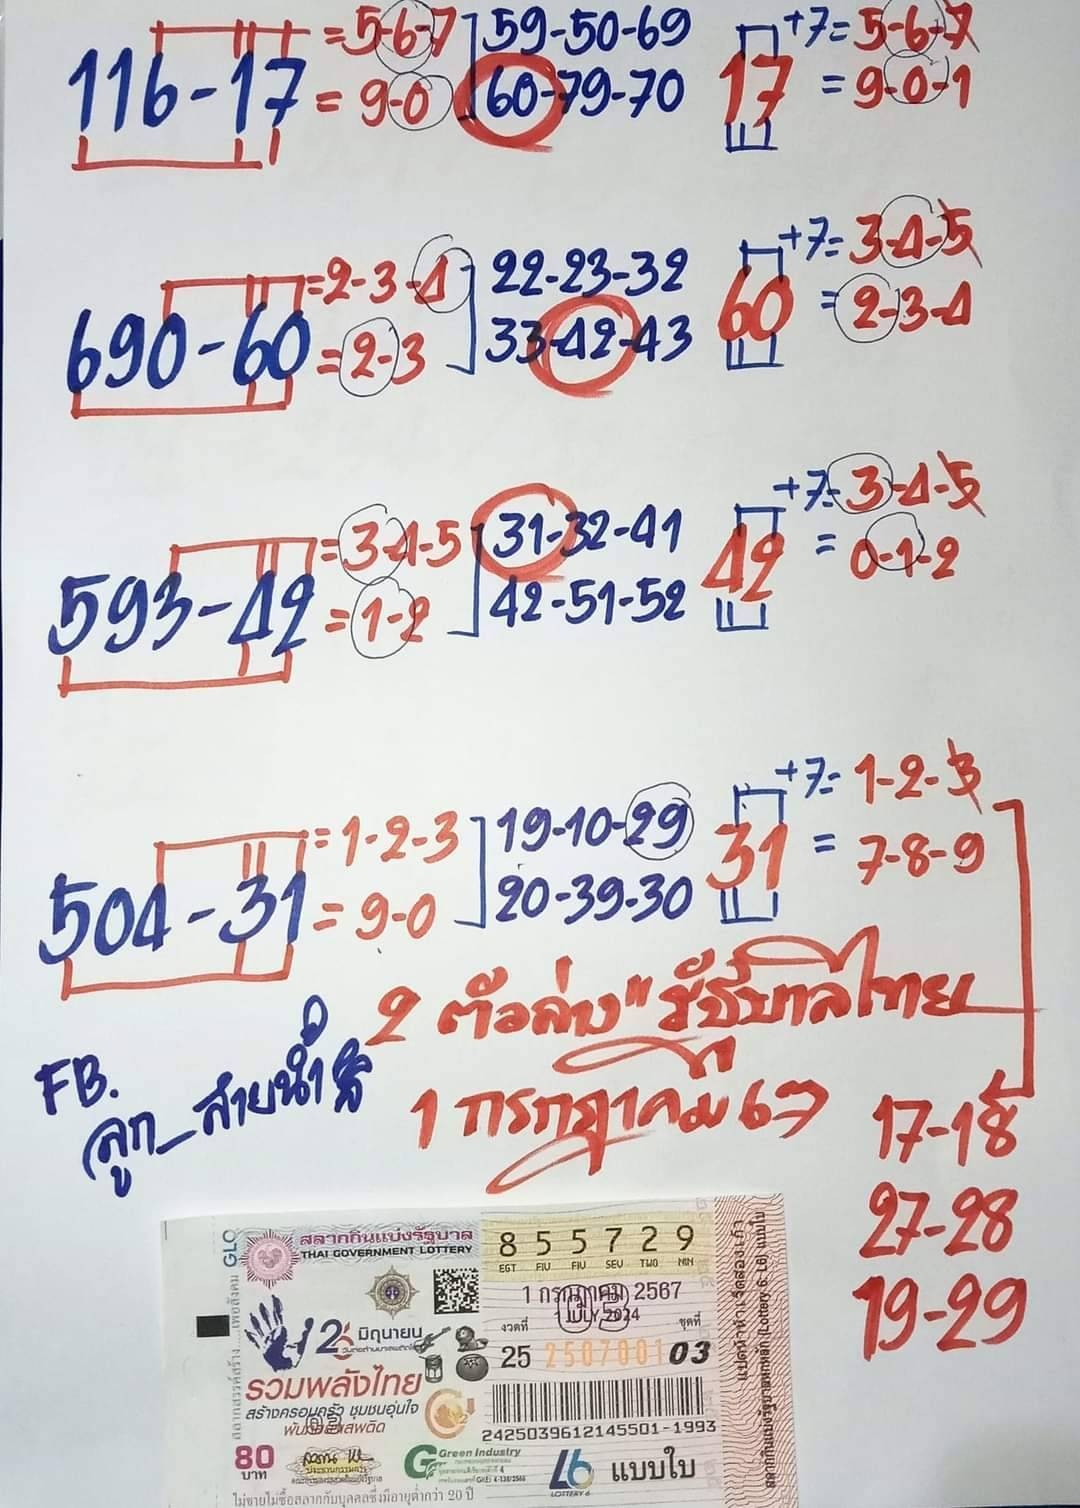 116-17 =5-6-7 59-50-69 17 +7= 5-6-7
= 9-0 60-79-70 = 9-0-1
690-60 =2-3-4 22-23-32 60 +7= 3-4-5
=2-3 33-42-43 =2-3-4
593-42 =3-4-5 31-32-41 42 +7= 3-4-5
=1-2 42-51-52 = 0-1-2
504-31 =1-2-3 19-10-29 31 +7= 1-2-3
= 9-0 20-39-30 = 7-8-9
2 ตัวล่าง"รัฐบาลไทย
1 กรกฎาคม 67
FB.
ลูก_สายน้ำ
17-18
27-28
19-29
GLO
สลากกินแบ่งรัฐบาล
THAI GOVERNMENT LOTTERY
8 5 5 7 2 9
EGT FIV FIV SEV TWO NIN
1 กรกฎาคม 2567
1 JULY 2024
งวดที่ ชุดที่
25 2507001 03
26 มิถุนายน
รวมพลังไทย
สร้างครอบครัว ชุมชนอุ่นใจ
พ้นภัยยาเสพติด
2425039612145501-1993
80
บาท
Green Industry
L6
LOTTERY 6
แบบใบ
ไม่ขายไม่ซื้อสลากกับบุคคลซึ่งมีอายุต่ำกว่า 20 ปี